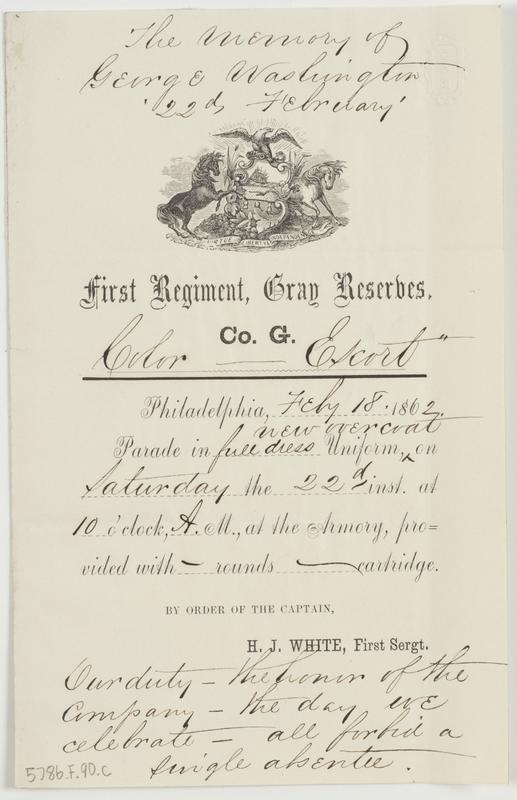 The memory of
George Washington
'22d February'
VIRTUE LIBERTY & INDEPENDENCE
First Regiment, Gray Reserves.
Co. G.
Color — Escort"
Philadelphia, Feby 18. 1862.
new overcoat
Parade in full dress Uniform, ^ on
Saturday the 22d inst. at
10 o'clock, A. M., at the Armory, pro=
vided with — rounds — cartridge.
BY ORDER OF THE CAPTAIN,
H. J. WHITE, First Sergt.
Our duty – the honor of the
Company – the day we
celebrate – all forbid a
single absentee.
5786.F.90.c